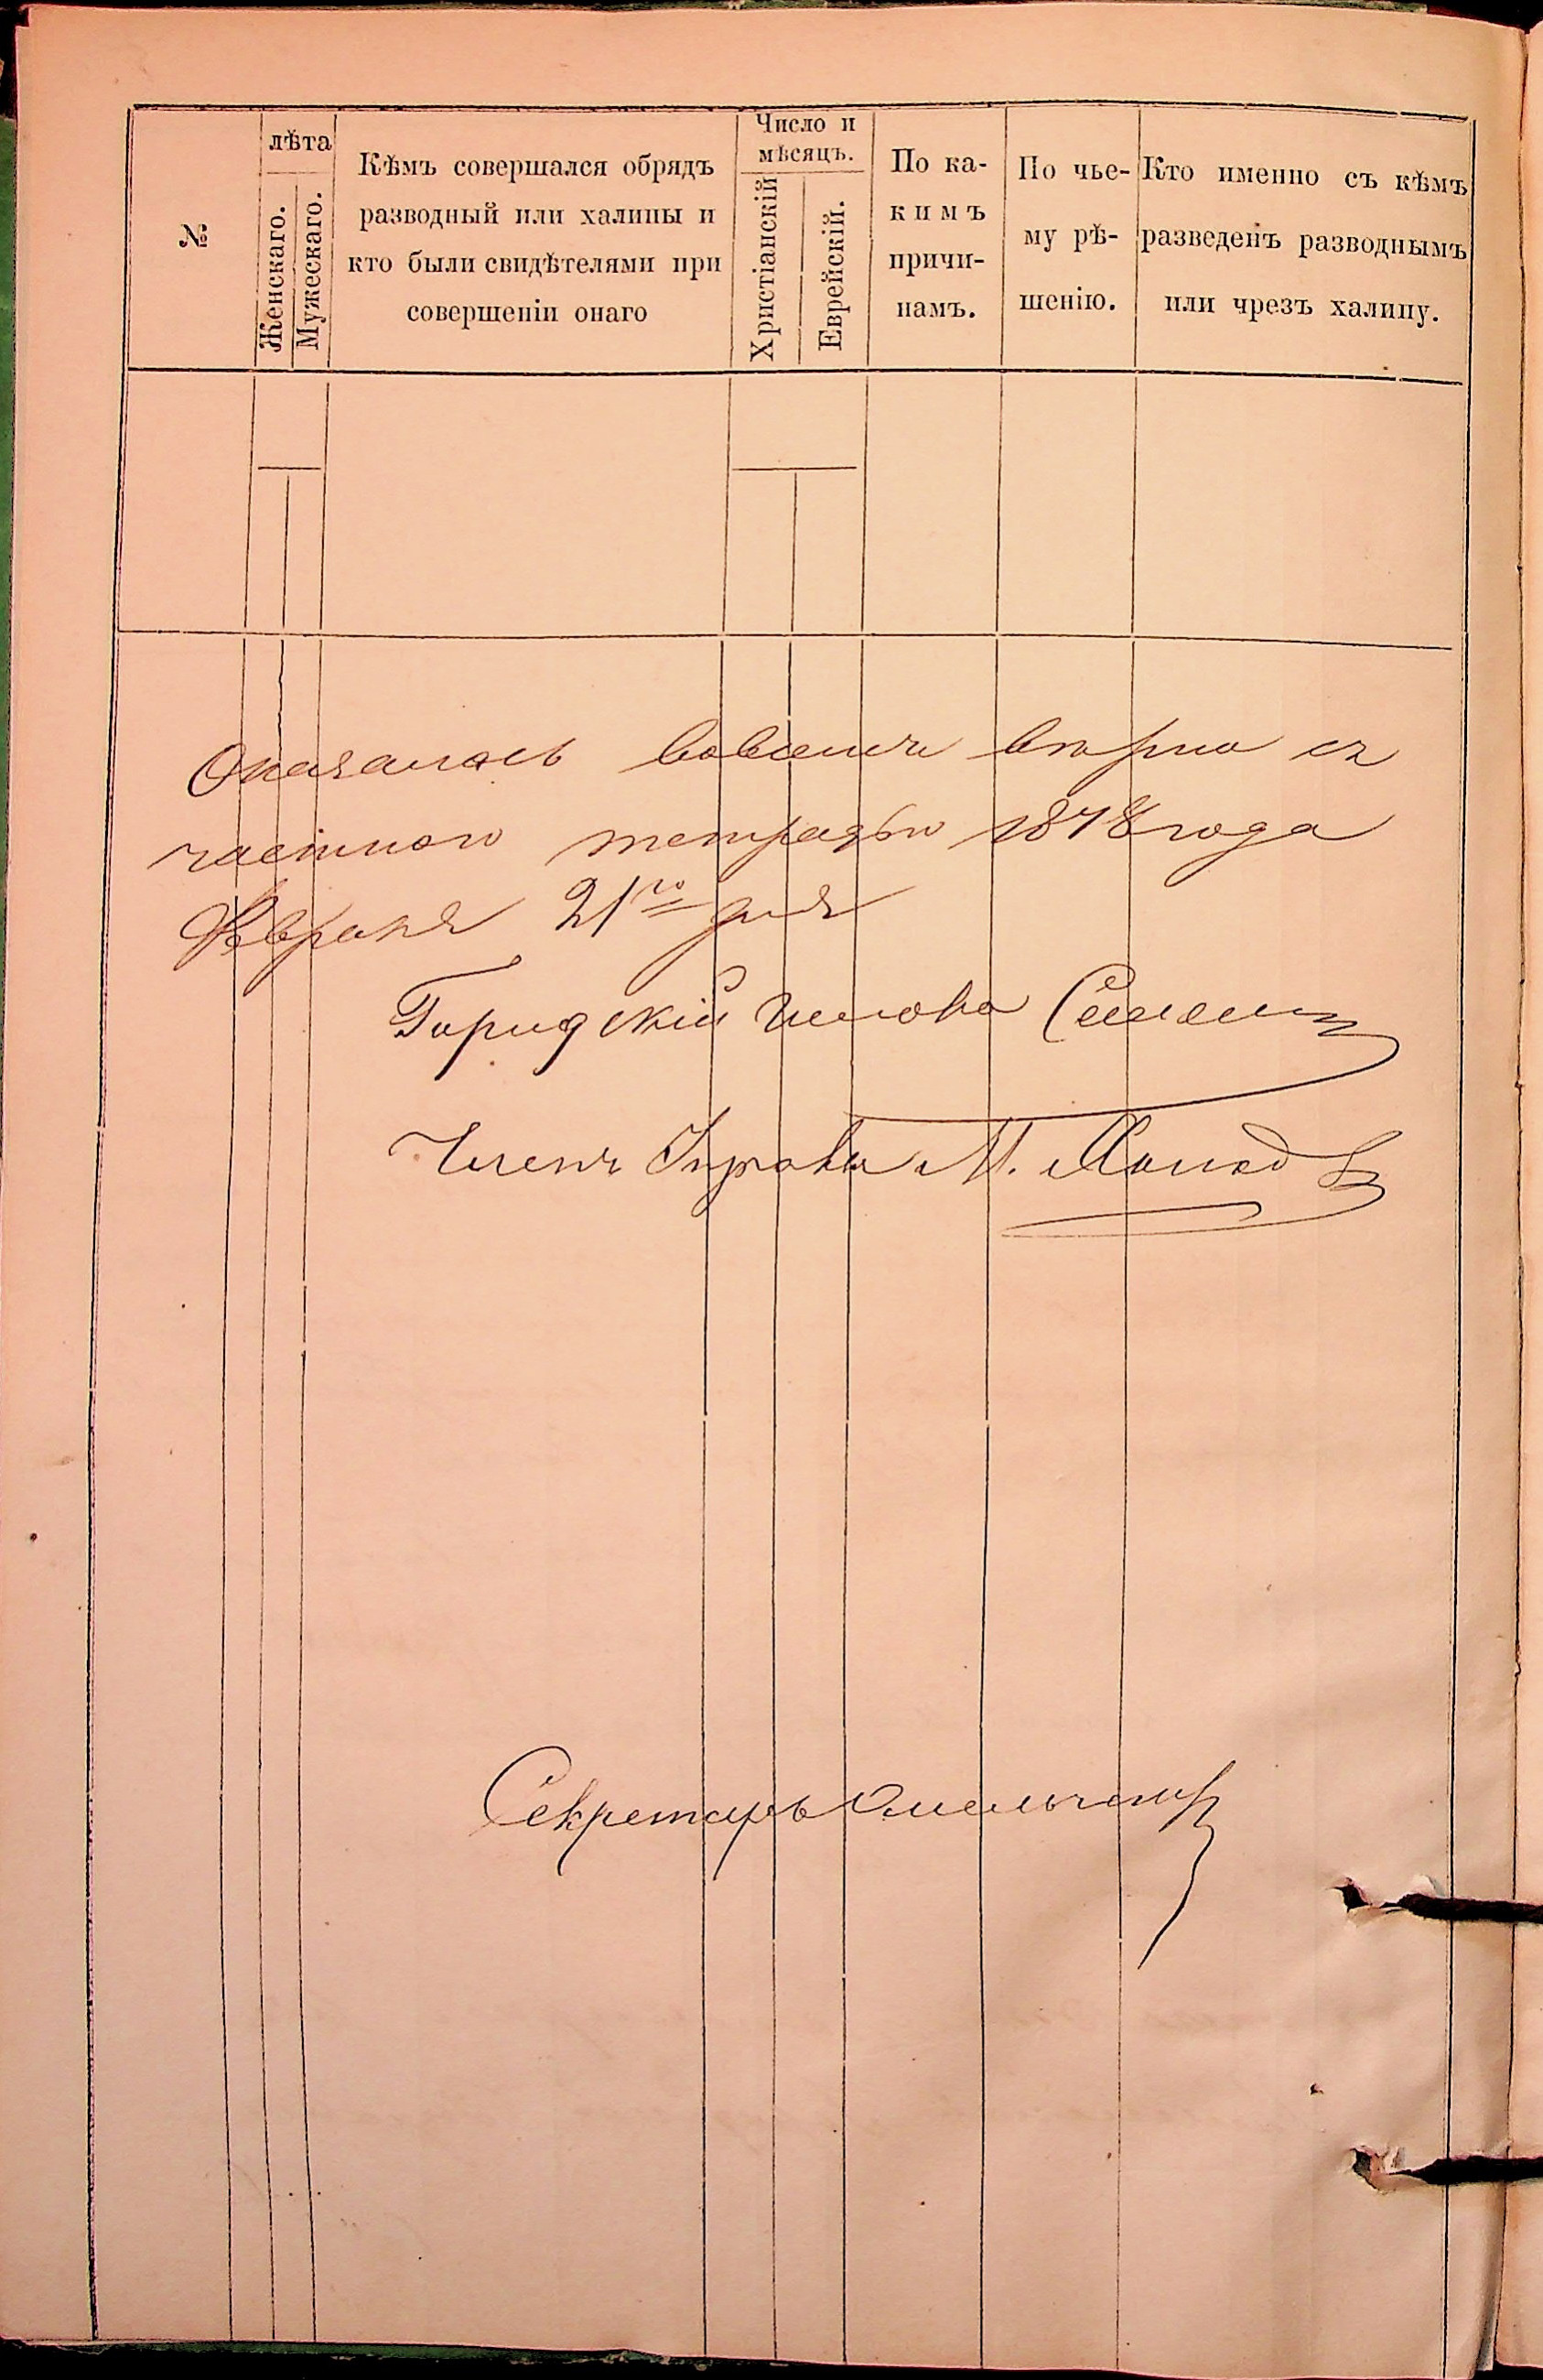 №
лѣта
Женскаго.
Мужескаго.
Кѣмъ совершался обрядъ
разводный или халицы и
кто были свидѣтелями при
совершеніи онаго
Число и
мѣсяцъ.
Христіанскій
Еврейскій.
По ка-
кимъ
причи-
намъ.
По чье-
му рѣ-
шенію.
Кто именно съ кѣмъ
разведенъ разводнымъ
или чрезъ халицу.
Оказалось во всемъ вѣрно съ
частною тетрадью 1878 года
Февраля 21го дня
Городскій Голова
Членъ Управы М.
Секретарь